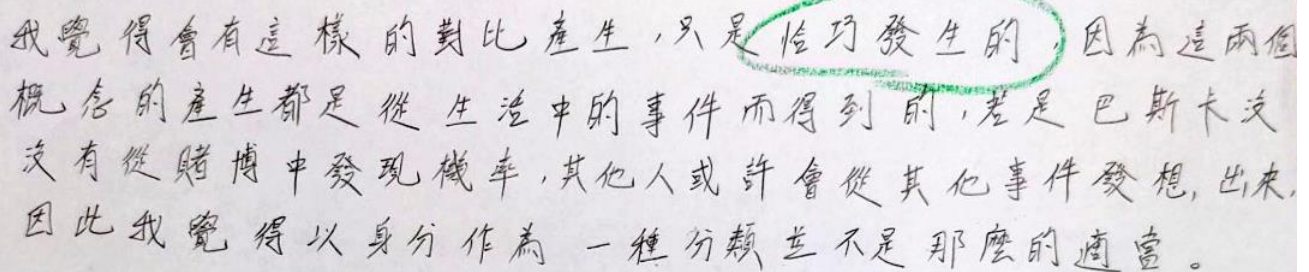 我覺得會有這樣的對比產生,只是恰巧發生的,因為這兩個
概念的產生都是從生活中的事件而得到的,若是巴斯卡沒
沒有從賭博中發現機率,其他人或許會從其他事件發想,出來,
因此我覺得以身分作為一種分類並不是那麼的適當。